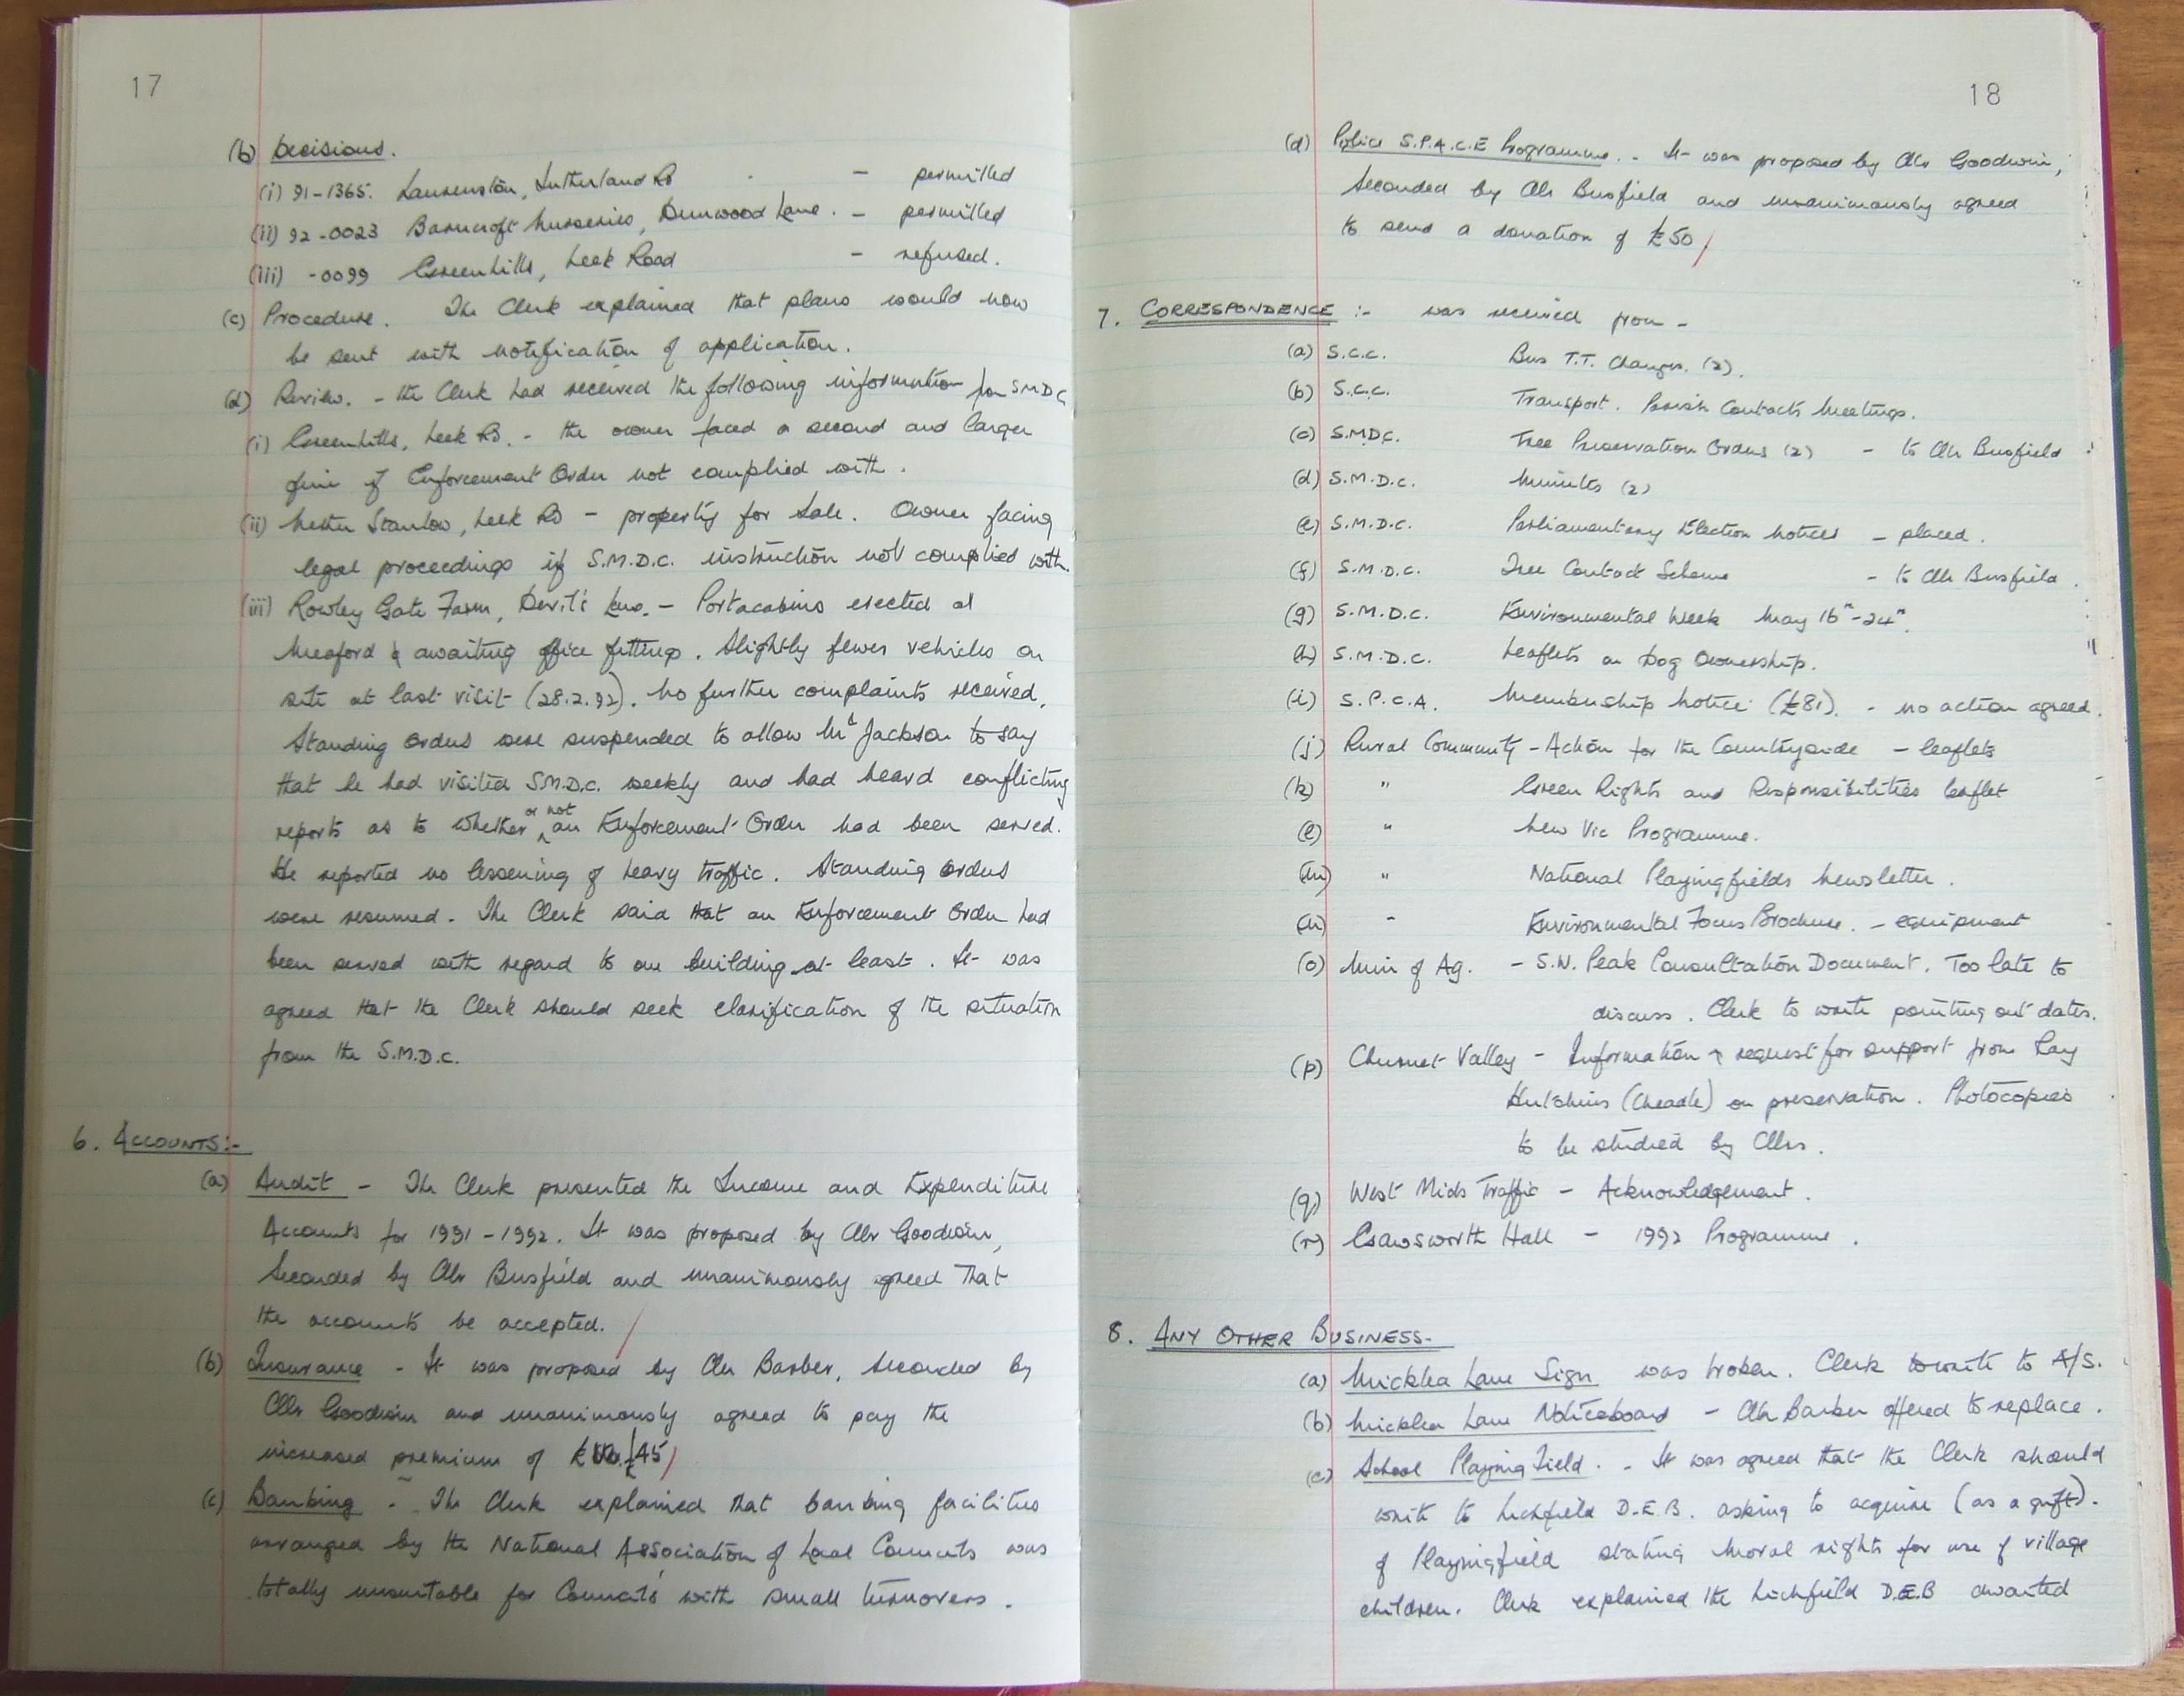 17
(b) Decisions.
(i) 91-1365. Launceston, Sutherland Rd - permitted
(ii) 92-0023 Barncroft Nurseries, Dunwood Lane. - permitted
(iii) -0099 Greenhills, Leek Road - refused.
(c) Procedure. The Clerk explained that plans would now
be sent with notification of application.
(d) Review. - the Clerk had received the following information from SMDC
(i) Greenhills, Leek Rd. - the owner faced a second and larger
fine if Enforcement Order not complied with.
(ii) Nether Stanlow, Leek Rd - property for sale. Owner facing
legal proceedings if S.M.D.C. instruction not complied with.
(iii) Rowley Gate Farm, Devil's Lane. - Portacabins erected at
Meaford & awaiting office fittings. Slightly fewer vehicles on
site at last visit (28.2.92). No further complaints received.
Standing Orders were suspended to allow Mr Jackson to say
that he had visited S.M.D.C. weekly and had heard conflicting
reports as to whether or not an Enforcement Order had been served.
He reported no lessening of heavy traffic. Standing Orders
were resumed. The Clerk said that an Enforcement Order had
been served with regard to one building at least. It was
agreed that the Clerk should seek clarification of the situation
from the S.M.D.C.
6. ACCOUNTS:-
(a) Audit - The Clerk presented the Income and Expenditure
Accounts for 1991-1992. It was proposed by Cllr Goodwin,
Seconded by Cllr Busfield and unanimously agreed that
the accounts be accepted.
(b) Insurance - It was proposed by Cllr Barber, Seconded by
Cllr Goodwin and unanimously agreed to pay the
increased premium of £45
(c) Banking - The Clerk explained that banking facilities
arranged by the National Association of Local Councils was
totally unsuitable for Councils with small turnovers.
18
(d) Police S.P.A.C.E Programme. - It was proposed by Cllr Goodwin,
Seconded by Cllr Busfield and unanimously agreed
to send a donation of £50
7. CORRESPONDENCE :- was received from -
(a) S.C.C. Bus T.T. Changes. (2).
(b) S.C.C. Transport. Parish Contacts Meetings.
(c) S.M.D.C. Tree Preservation Orders (2) - to Cllr Busfield
(d) S.M.D.C. Minutes (2)
(e) S.M.D.C. Parliamentary Election Notices - placed.
(f) S.M.D.C. Tree Contact Scheme - to Cllr Busfield.
(g) S.M.D.C. Environmental Week May 16th-24th.
(h) S.M.D.C. Leaflets on Dog Ownership.
(i) S.P.C.A. Membership Notice (£81). - no action agreed.
(j) Rural Community - Action for the Countryside - leaflets
(k) " Green Rights and Responsibilities leaflet
(l) " New Vic Programme.
(m) " National Playingfields Newsletter.
(n) " Environmental Focus Brochure. - equipment
(o) Min of Ag. - S.W. Peak Consultation Document. Too late to
discuss. Clerk to write pointing out dates.
(p) Churnet Valley - Information & request for support from Ray
Hutchins (Cheadle) on preservation. Photocopies
to be studied by Cllrs.
(q) West Mids Traffic - Acknowledgement.
(r) Gawsworth Hall - 1992 Programme.
8. ANY OTHER BUSINESS-
(a) Micklea Lane Sign was broken. Clerk to write to A/S.
(b) Micklea Lane Noticeboard - Cllr Barber offered to replace.
(c) School Playing Field. - It was agreed that the Clerk should
write to Lichfield D.E.B. asking to acquire (as a gift).
of Playingfield stating moral rights for use of village
children. Clerk explained the Lichfield D.E.B awaited